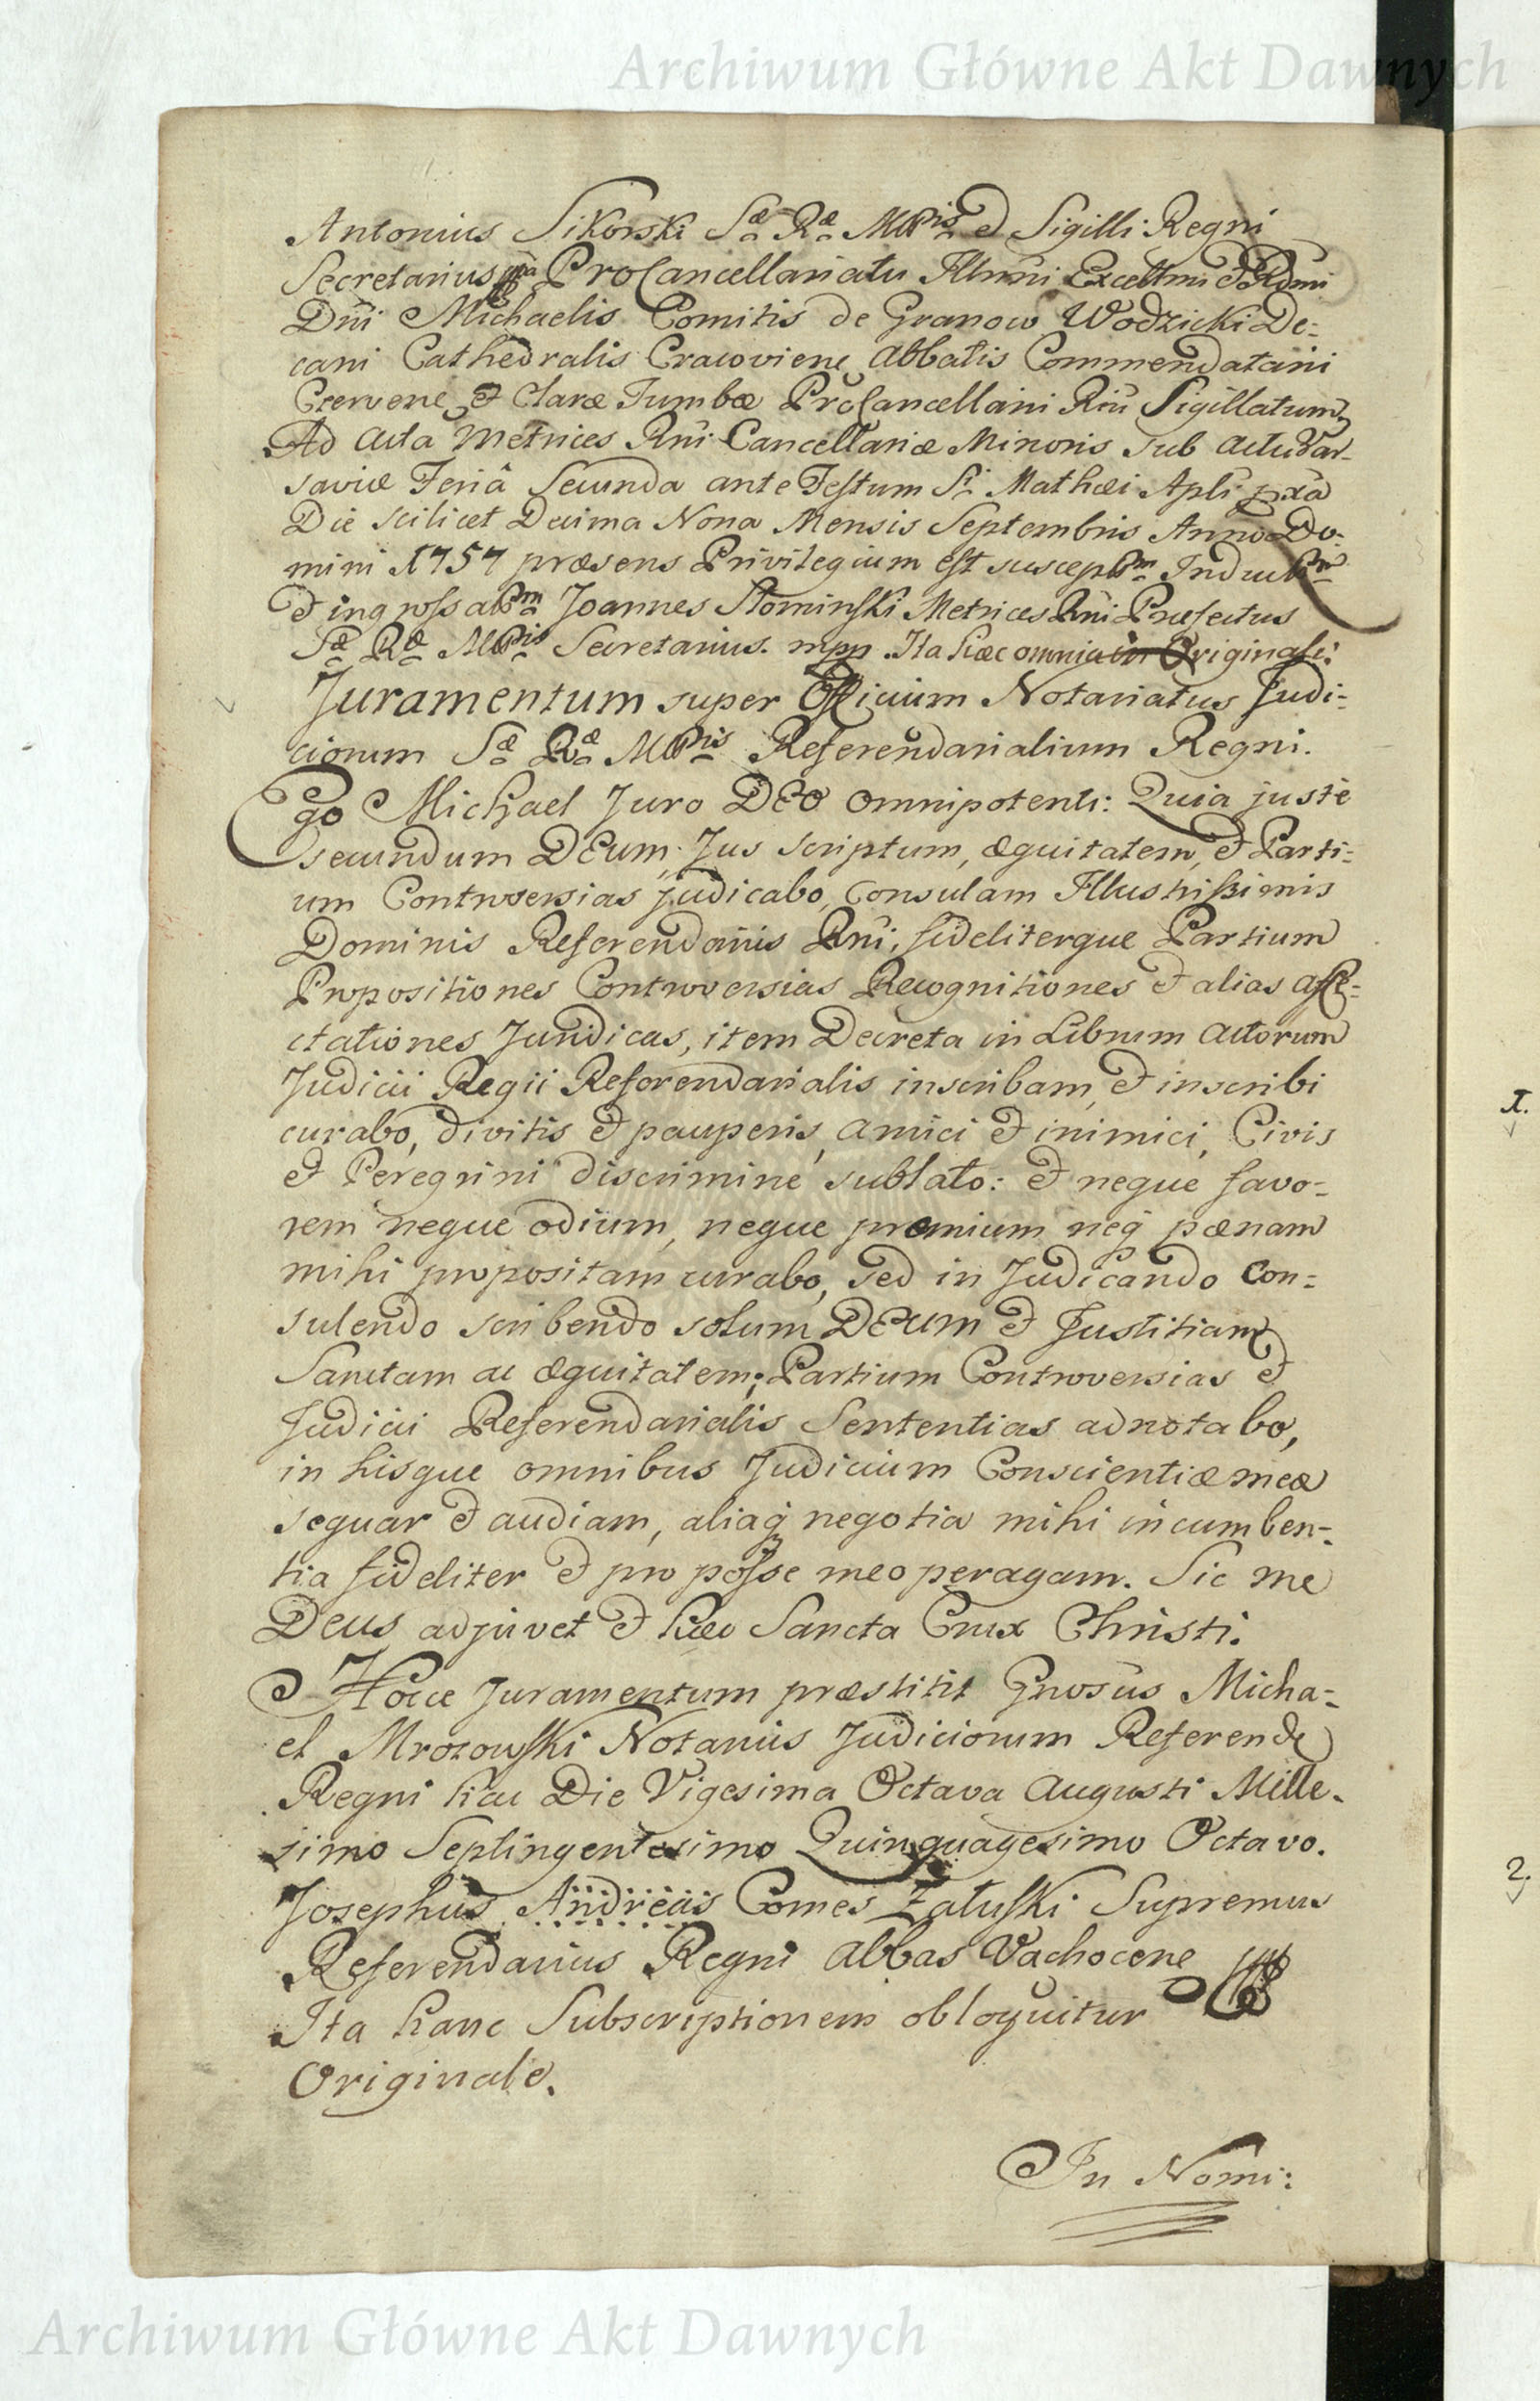 Archiwum Główne Akt Dawnych
Antonius Sikorski Sæ Ræ Mttis & Sigilli Regni
Secretarius mp. ProCancellariatu Illmi Excellmi & Rdmi
Dni Michaelis Comitis de Granow Wodzicki De=
cani Cathedralis Cracoviene Abbatis Commendatarii
Czervene & Claræ Tumbæ ProCancellarii Rni Sigillatum
Ad Acta Metrices Rni Cancellariæ Minoris sub actu Var-
saviæ Feriâ Secunda ante Festum Si Mathæi Apli pxa
Die scilicet Decima Nona Mensis Septembris Anno Do:
mini 1757 præsens Privilegium est susceptm Inductm
& ingrossatm Joannes Słominski Metrices Rni Præfectus
Sæ Ræ Mttis Secretarius. mpp. Ita hæc omnia in Originali:
Juramentum super Officium Notariatus Judi=
ciorum Sæ Ræ Mttis Referendarialium Regni.
Ego Michael Juro DEO omnipotenti: Quia juste
secundum DEum, Jus scriptum, æquitatem, & Parti=
um Controversias judicabo, consulam Illustrissimis
Dominis Referendariis Rni, fideliterque Partium
Propositiones Controversias Recognitiones & alias affe=
ctationes Juridicas, item Decreta in Librum Actorum
Judicii Regii Referendarialis inscribam, & inscribi
curabo, divitis & pauperis, amici & inimici, Civis
& Peregrini discrimine sublato: & neque favo=
rem neque odium, neque præmium neq pænam
mihi propositam curabo, sed in Judicando con=
sulendo scribendo solum DEUM & Justitiam
Sanctam ac æquitatem; Partium Controversias &
Judicii Referendarialis Sententias adnotabo,
in hisque omnibus Judicium Conscientiæ meæ
sequar & audiam, aliaq negotia mihi incumben=
tia fideliter & pro posse meo peragam. Sic me
Deus adjuvet & hæc Sancta Crux Christi.
Hocce Juramentum præstitit Gnosus Micha=
el Mrozowski Notarius Judiciorum Referende
Regni hac Die Vigesima Octava Augusti Mille-
simo Septingentesimo Quinquagesimo Octavo.
Josephus Andreas Comes Załuski Supremus
Referendarius Regni Abbas Vachocene
Ita hanc Subscriptionem obloquitur
Originale.
In Nomi:
1.
2.
Archiwum Główne Akt Dawnych